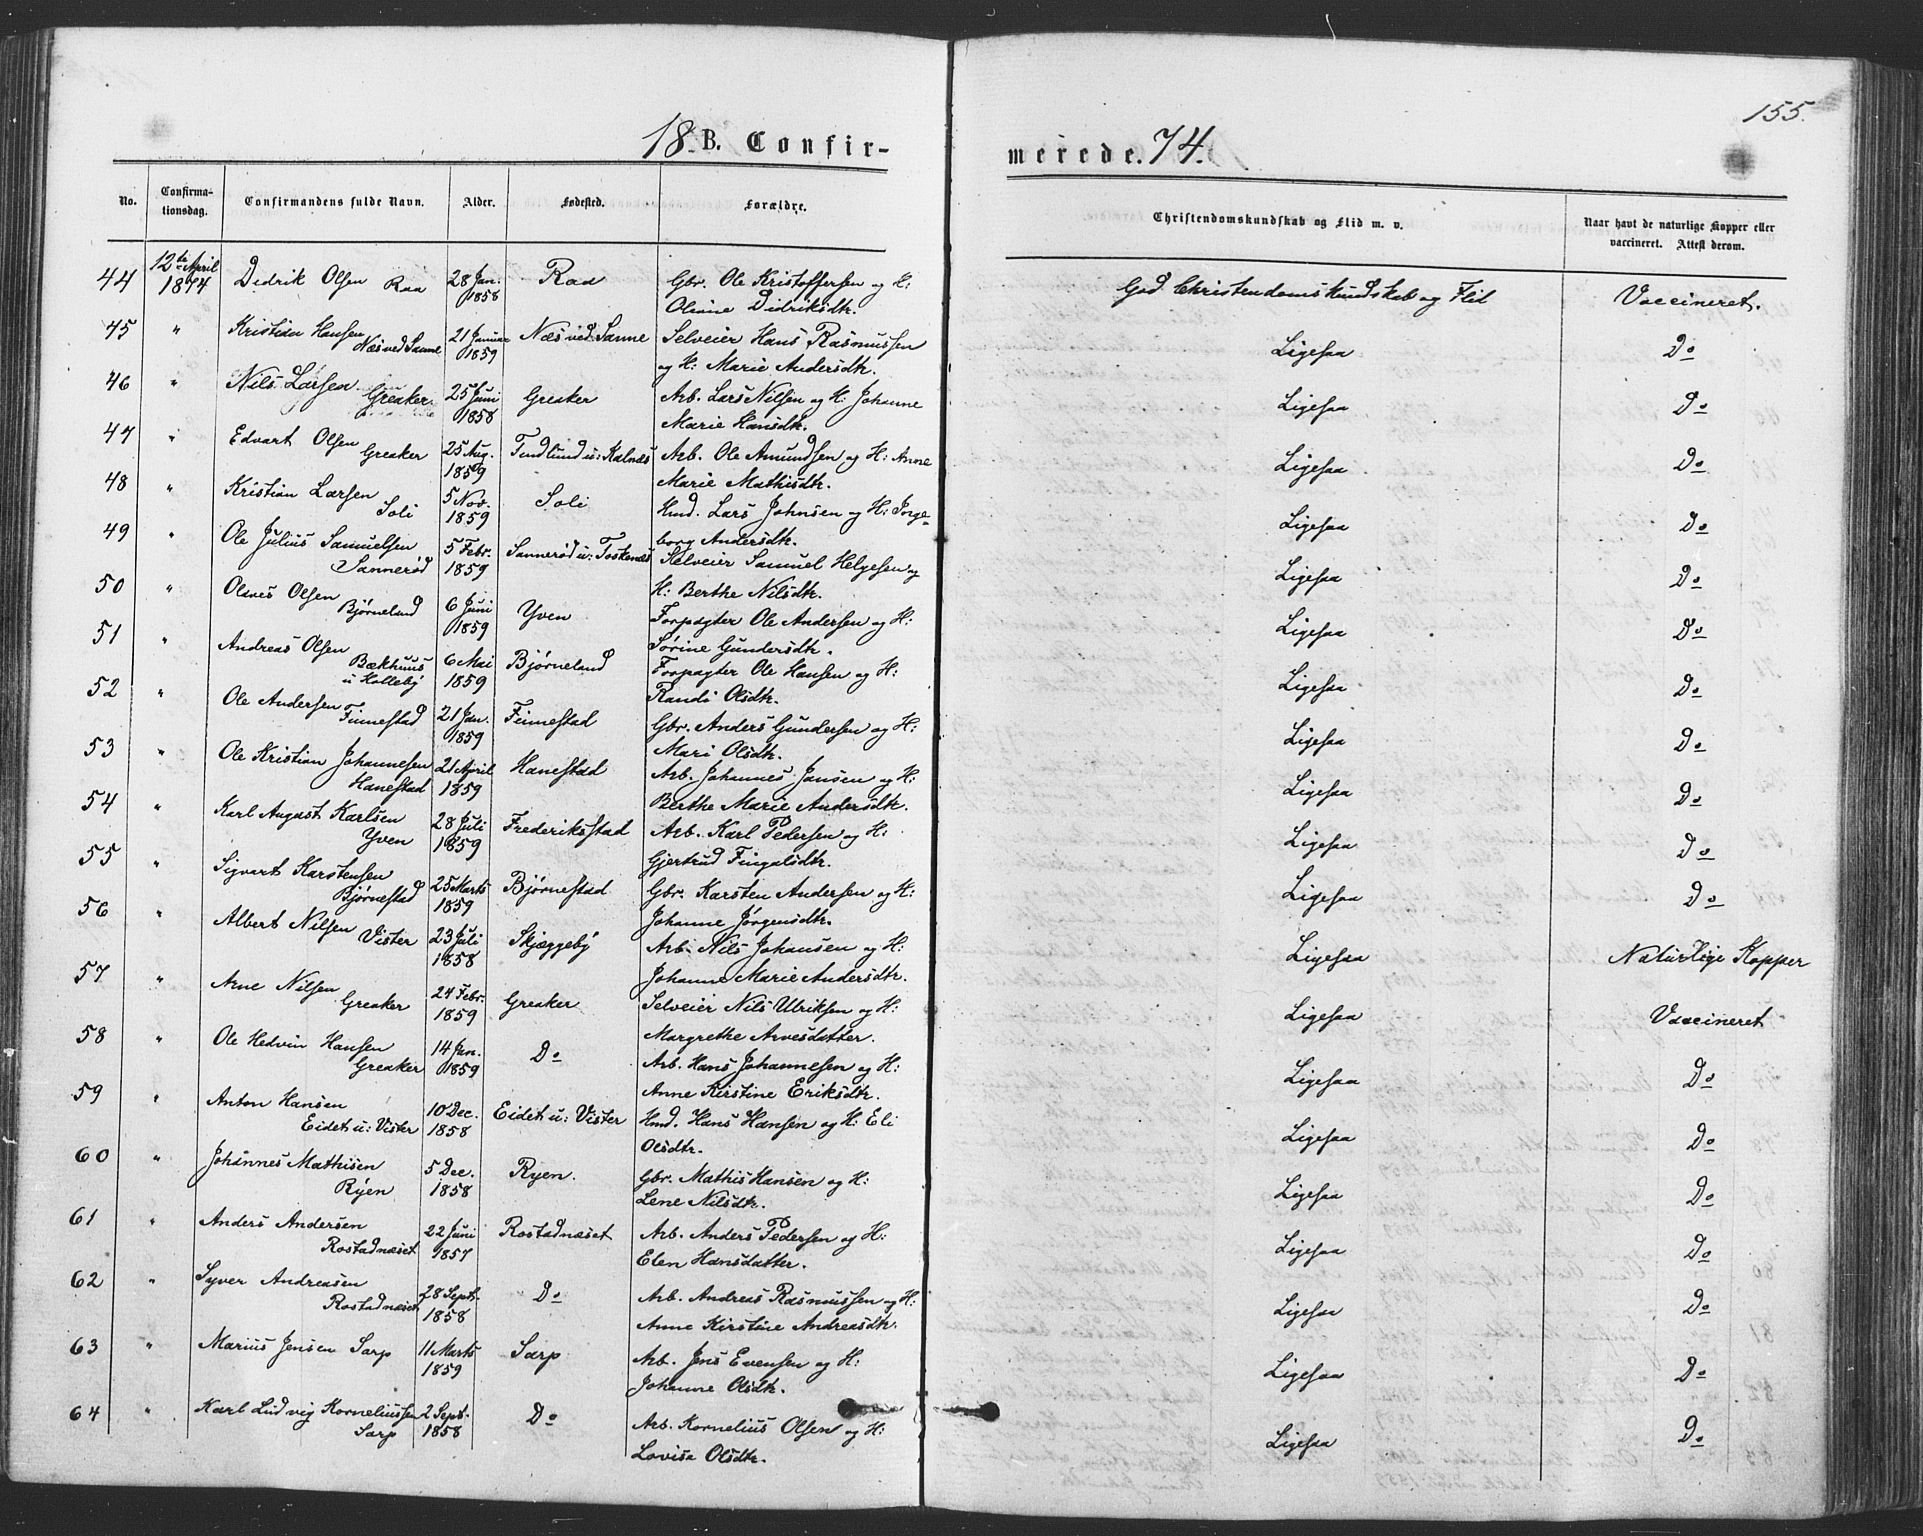 155.
18. B. Confir-
merede. 74.
No.
Confirma-
tionsdag.
Confirmandens fulde Navn.
Alder.
Fødested.
Forældre.
Christendomskundskab og Flid m. v.
Naar havt de naturlige Kopper eller
vaccineret. Attest derom.
44 12te April 1874 Didrik Olsen Raa 28 Jan. 1858 Raa Gbr. Ole Kristoffersen og H:
Oliane Didriksdtr. God Christendomskundskab og Flid Vaccineret.
45 " Kristian Hansen Næs ved Sanne 21 Januar 1859 Næs ved Sanne Selveier Hans Rasmussen
og H: Marie Andersdtr. Ligesaa Do
46 " Nils Larsen Greaker 25 Juni 1858 Greaker Arb. Lars Nilsen og H: Johanne
Marie Hansdtr. Ligesaa Do
47 " Edvart Olsen Greaker 25 Aug. 1859 Tendlund u: Kalnæs Arb. Ole Amundsen og H: Anne
Marie Mathisdtr. Ligesaa Do
48 " Kristian Larsen Soli 5 Nov. 1859 Soli Hmd. Lars Johnsen og H: Inge-
borg Andersdtr. Ligesaa Do
49 " Ole Julius Samuelsen Sannerød 5 Febr. 1859 Sannerød u: Toskenæs Selveier Samuel Helgesen og
H: Berthe Nilsdtr. Ligesaa Do
50 " Olaves Olsen Bjørneland 6 Juni 1859 Yven Forpagter Ole Andersen og H:
Sørine Gundersdtr. Ligesaa Do
51 " Andreas Olsen Bækhuus u Holleby 6 Mai 1859 Bjørneland Forpagter Ole Hansen og H:
Randi Olsdtr. Ligesaa Do
52 " Ole Andersen Finnestad 21 Jan. 1859 Finnestad Gbr. Anders Gundersen og H:
Mari Olsdtr. Ligesaa Do
53 " Ole Kristian Johannesen Hanestad 21 April 1859 Hanestad Arb. Johannes Jansen og H:
Berthe Marie Andersdtr. Ligesaa Do
54 " Karl August Karlsen Yven 28 Juli 1859 Frederiksstad Arb. Karl Pedersen og H:
Gjertrud Fingalsdtr. Ligesaa Do
55 " Sigvart Karstensen Bjørnestad 25 Marts 1859 Bjørnestad Gbr. Karsten Andersen og H:
Johanne Jørgensdtr. Ligesaa Do
56 " Albert Nilsen Vister 23 Juli 1858 Skjæggeby Arb. Nils Johansen og H:
Johanne Marie Andersdtr. Ligesaa Naturlige Kopper
57 " Arne Nilsen Greaker 24 Febr. 1859 Greaker Selveier Nils Ulriksen og H:
Margrethe Arnesdatter. Ligesaa Vaccineret
58 " Ole Hedvin Hansen Greaker 14 Jan. 1859 Do Arb. Hans Johannesen og H:
Anne Kirstine Eriksdtr. Ligesaa Do
59 " Anton Hansen Eidet u: Vister 10 Dec. 1858 Eidet u: Vister Hmd. Hans Hansen og H: Eli
Olsdtr. Ligesaa Do
60 " Johannes Mathisen Ryen 5 Dec. 1858 Ryen. Gbr. Mathis Hansen og H:
Lene Nilsdtr. Ligesaa Do
61 " Anders Andersen Rostadnæset 22 Juni 1857 Rostadnæset Arb. Anders Pedersen og H:
Elen Hansdatter. Ligesaa Do
62 " Syver Andreasen Rostadnæset 28 Sept. 1858 Do Arb. Andreas Rasmussen og H:
Anne Kirstine Andreasdtr. Ligesaa Do
63 " Marius Jensen Sarp 11 Marts 1859 Sarp Arb. Jens Evensen og H:
Johanne Olsdtr. Ligesaa Do
64 " Karl Ludvig Korneliussen Sarp 2 Sept. 1858 Do Arb. Kornelius Olsen og H:
Lovisa Olsdtr. Ligesaa Do